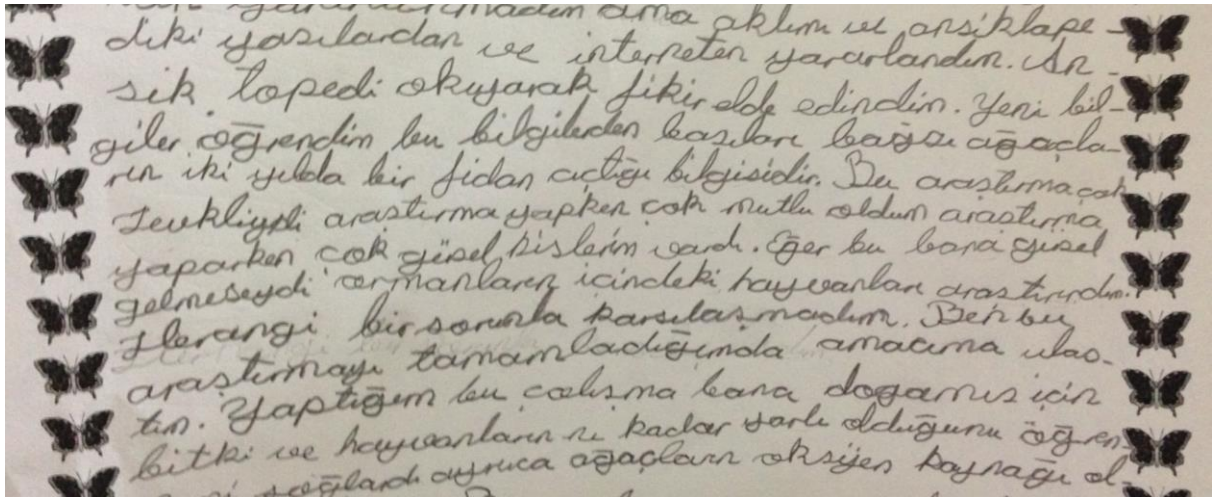 ama aklım ve ansiklape-
diki yazılardan ve interneten yararlandım. An-
sik lopedi okuyarak fikir elde edindim. Yeni bil-
giler öğrendim bu bilgilerden bazıları bağzı ağaçla-
rın iki yılda bir fidan açtığı bilgisidir. Bu araştırma çok
zevkliydi araştırma yapken çok mutlu oldum araştırma
yaparken çok güzel hislerim vardı. Eğer bu bana güzel
gelmeseydi ormanların içindeki hayvanları araştırırdım.
Herangi bir sorunla karsılasmadım. Ben bu
araştırmayı tamamladığımda amacıma ulaş-
tım. Yaptığım bu çalışma bana doğamız için
bitki ve hayvanların ne kadar yarlı olduğunu öğren-
sağlardı ayrıca ağaçların oksijen kaynağı ol-